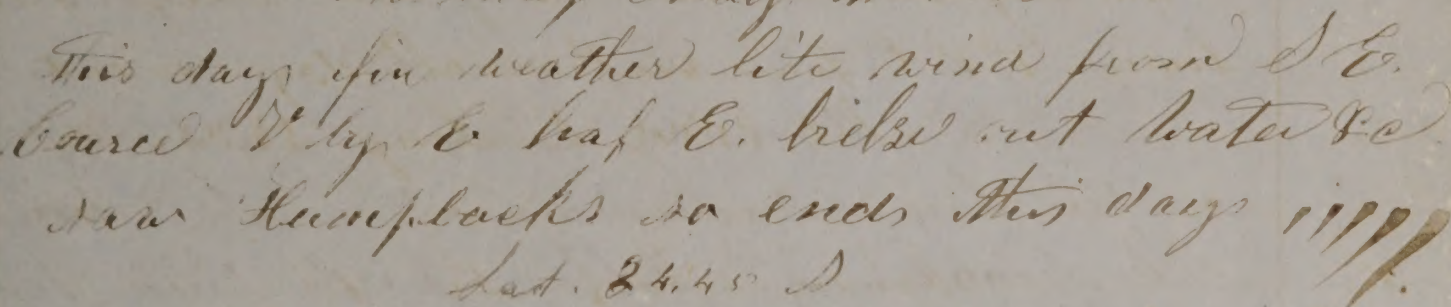 This days fin weather lite wind from S E.
Cource N by E haf E. out water &c
saw Humpbacks so ends this days
Lat. 24.45 S